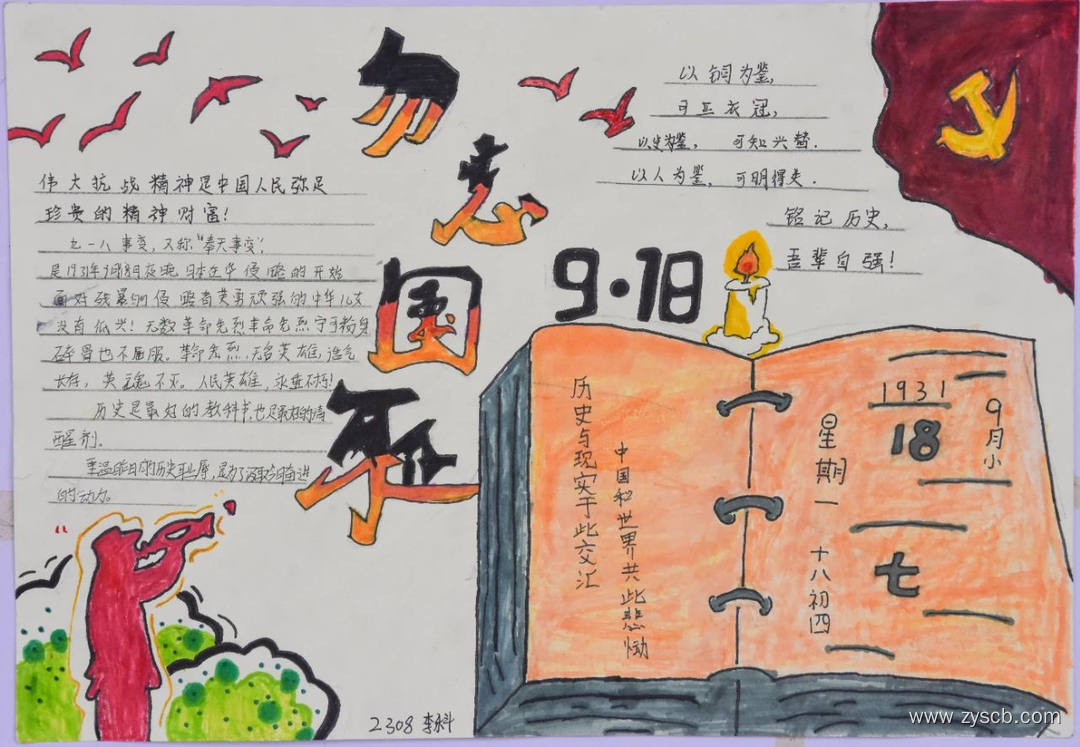 勿忘国耻
9·18
以铜为鉴,
可正衣冠,
以史为鉴, 可知兴替.
以人为鉴, 可明得失.
铭记历史,
吾辈自强!
伟大抗战精神是中国人民弥足
珍贵的精神财富!
九一八事变, 又称“奉天事变”!
是1931年9月18日夜晚日本在华侵略的开始
面对残暴的侵略者英勇顽强的中华儿女
没有低头! 无数革命先烈革命先烈宁可粉身
碎骨也不屈服。革命先烈, 无名英雄, 浩气
长存, 英魂不灭。人民英雄, 永垂不朽!
历史是最好的教科书, 也是最好的清
醒剂。
重温昨日的历史耻辱, 是为了汲取今朝奋进
的动力。
历史与现实于此交汇
中国和世界共此悲恸
星期一
十八初四
1931
18
七
9月小
2308 李永斗
www.zyscb.com